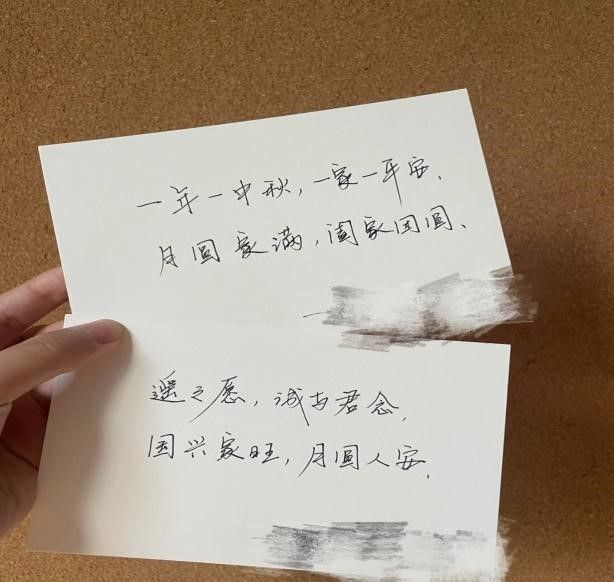 一年一中秋，一家一平安、
月圆家满，阖家团圆、
遥之愿，诚与君念，
国兴家旺，月圆人安，